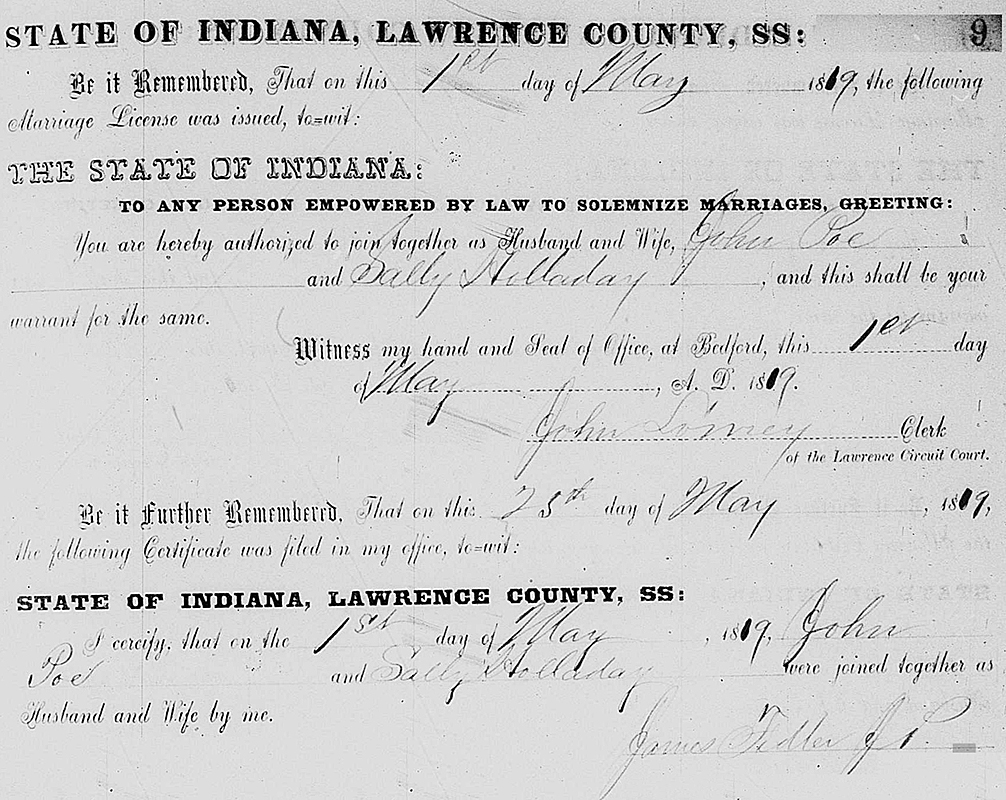 STATE OF INDIANA, LAWRENCE COUNTY, SS: 9
Be it Remembered, That on this 1st day of May 1819, the following
Marriage License was issued, to=wit:
THE STATE OF INDIANA:
TO ANY PERSON EMPOWERED BY LAW TO SOLEMNIZE MARRIAGES, GREETING:
You are hereby authorized to join together as Husband and Wife, John Poe
and Sally Holladay, and this shall be your
warrant for the same.
Witness my hand and Seal of Office, at Bedford, this 1st day
of May, A. D. 1819.
John Clerk
of the Lawrence Circuit Court.
Be it Further Remembered, That on this 25th day of May, 1819,
the following Certificate was filed in my office, to=wit:
STATE OF INDIANA, LAWRENCE COUNTY, SS:
I cercify, that on the 1st day of May, 1819, John
Poe and Sally Holladay were joined together as
Husband and Wife by me.
James Fidler J P.